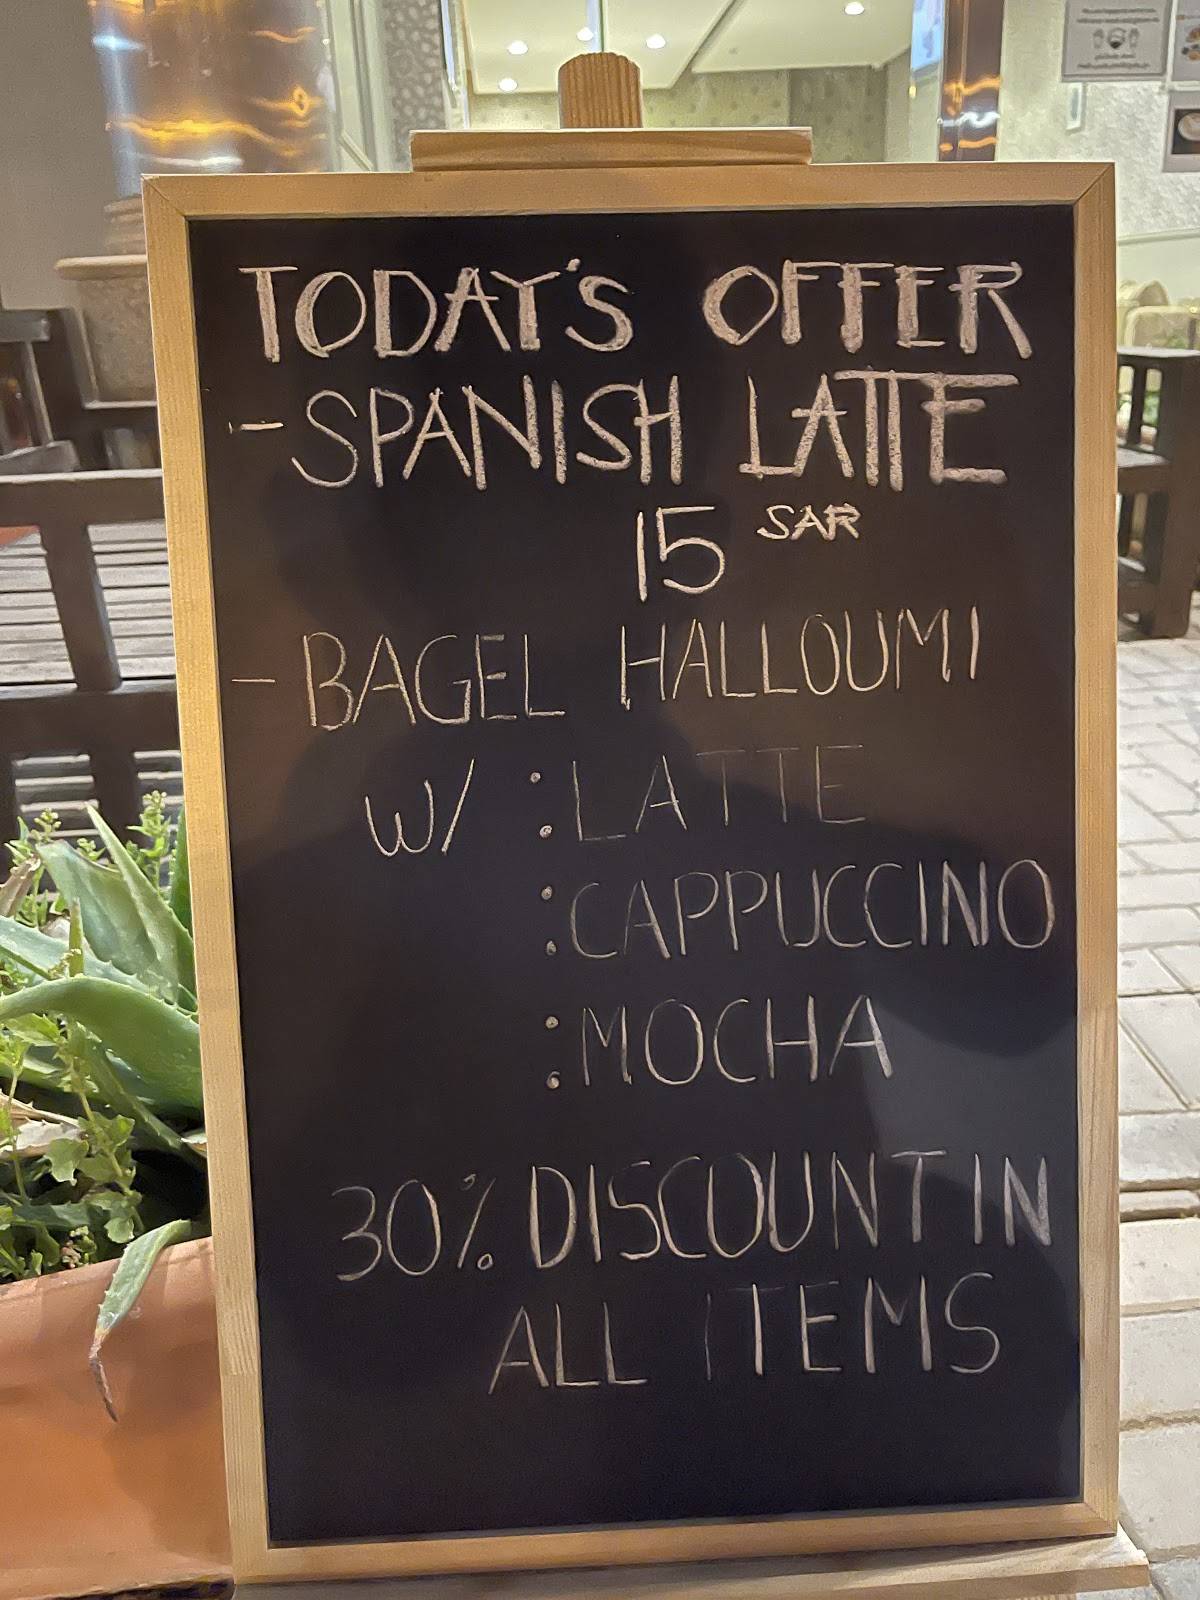 TODAY'S OFFER
- SPANISH LATTE
15 SAR
- BAGEL HALLOUMI
W/ : LATTE
: CAPPUCCINO
: MOCHA
30% DISCOUNT IN
ALL ITEMS